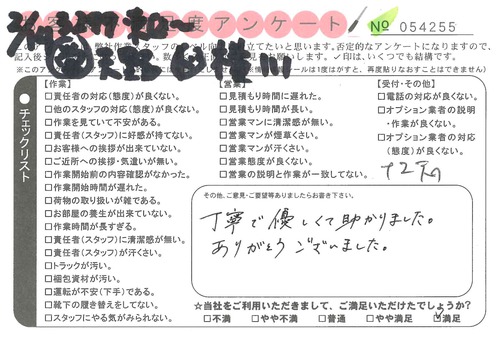 お客様満足度アンケート
№ 054255
チェックリスト
【作業】
□責任者の対応(態度)が良くない。
□他のスタッフの対応(態度)が良くない。
□作業を見ていて不安がある。
□責任者(スタッフ)に好感が持てない。
□お客様への挨拶が出来ていない。
□ご近所への挨拶・気遣いが無い。
□作業開始前の内容確認がなかった。
□作業開始時間が遅れた。
□荷物の取り扱いが雑である。
□お部屋の養生が出来ていない。
□作業時間が長すぎる。
□責任者(スタッフ)に清潔感が無い。
□責任者(スタッフ)が汗くさい。
□トラックが汚い。
□梱包資材が汚い。
□運転が不安(下手)である。
□靴下の履き替えをしてない。
□スタッフにやる気がみられない。
【営業】
□見積もり時間に遅れた。
□見積もり時間が長い。
□営業マンに清潔感が無い。
□営業マンが煙草くさい。
□営業マンが汗くさい。
□営業態度が良くない。
□営業の説明と作業が一致してない。
【受付・その他】
□電話の対応が良くない。
□オプション業者の説明
・作業が良くない。
□オプション業者の対応
(態度)が良くない。
その他、ご意見・ご要望等ありましたらお書き下さい。
丁寧で優しくて助かりました。
ありがとうございました。
☆当社をご利用いただきまして、ご満足いただけたでしょうか?
□不満 □やや不満 □普通 □やや満足 ☑満足